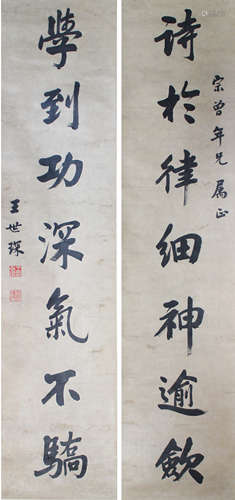 詩於律細神逾歛
宗曾年兄属正
學到功深氣不驕
王世琛